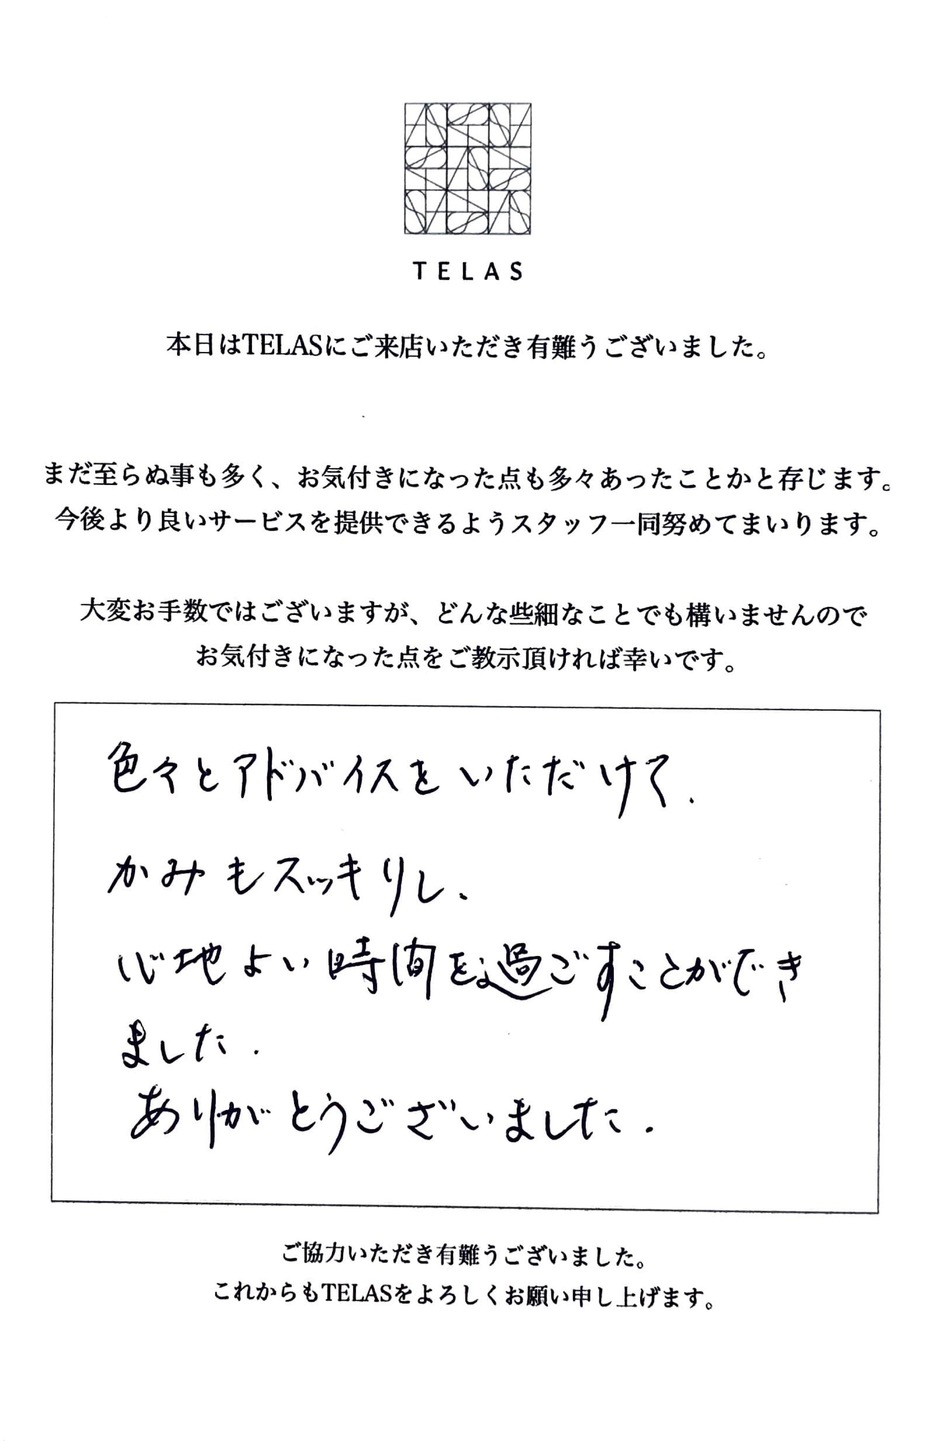 TELAS
本日はTELASにご来店いただき有難うございました。
まだ至らぬ事も多く、お気付きになった点も多々あったことかと存じます。
今後より良いサービスを提供できるようスタッフ一同努めてまいります。
大変お手数ではございますが、どんな些細なことでも構いませんので
お気付きになった点をご教示頂ければ幸いです。
色々とアドバイスをいただけて、
かみもスッキりし、
心地よい時間を過ごすことができ
ました.
ありがとうございました.
ご協力いただき有難うございました。
これからもTELASをよろしくお願い申し上げます。